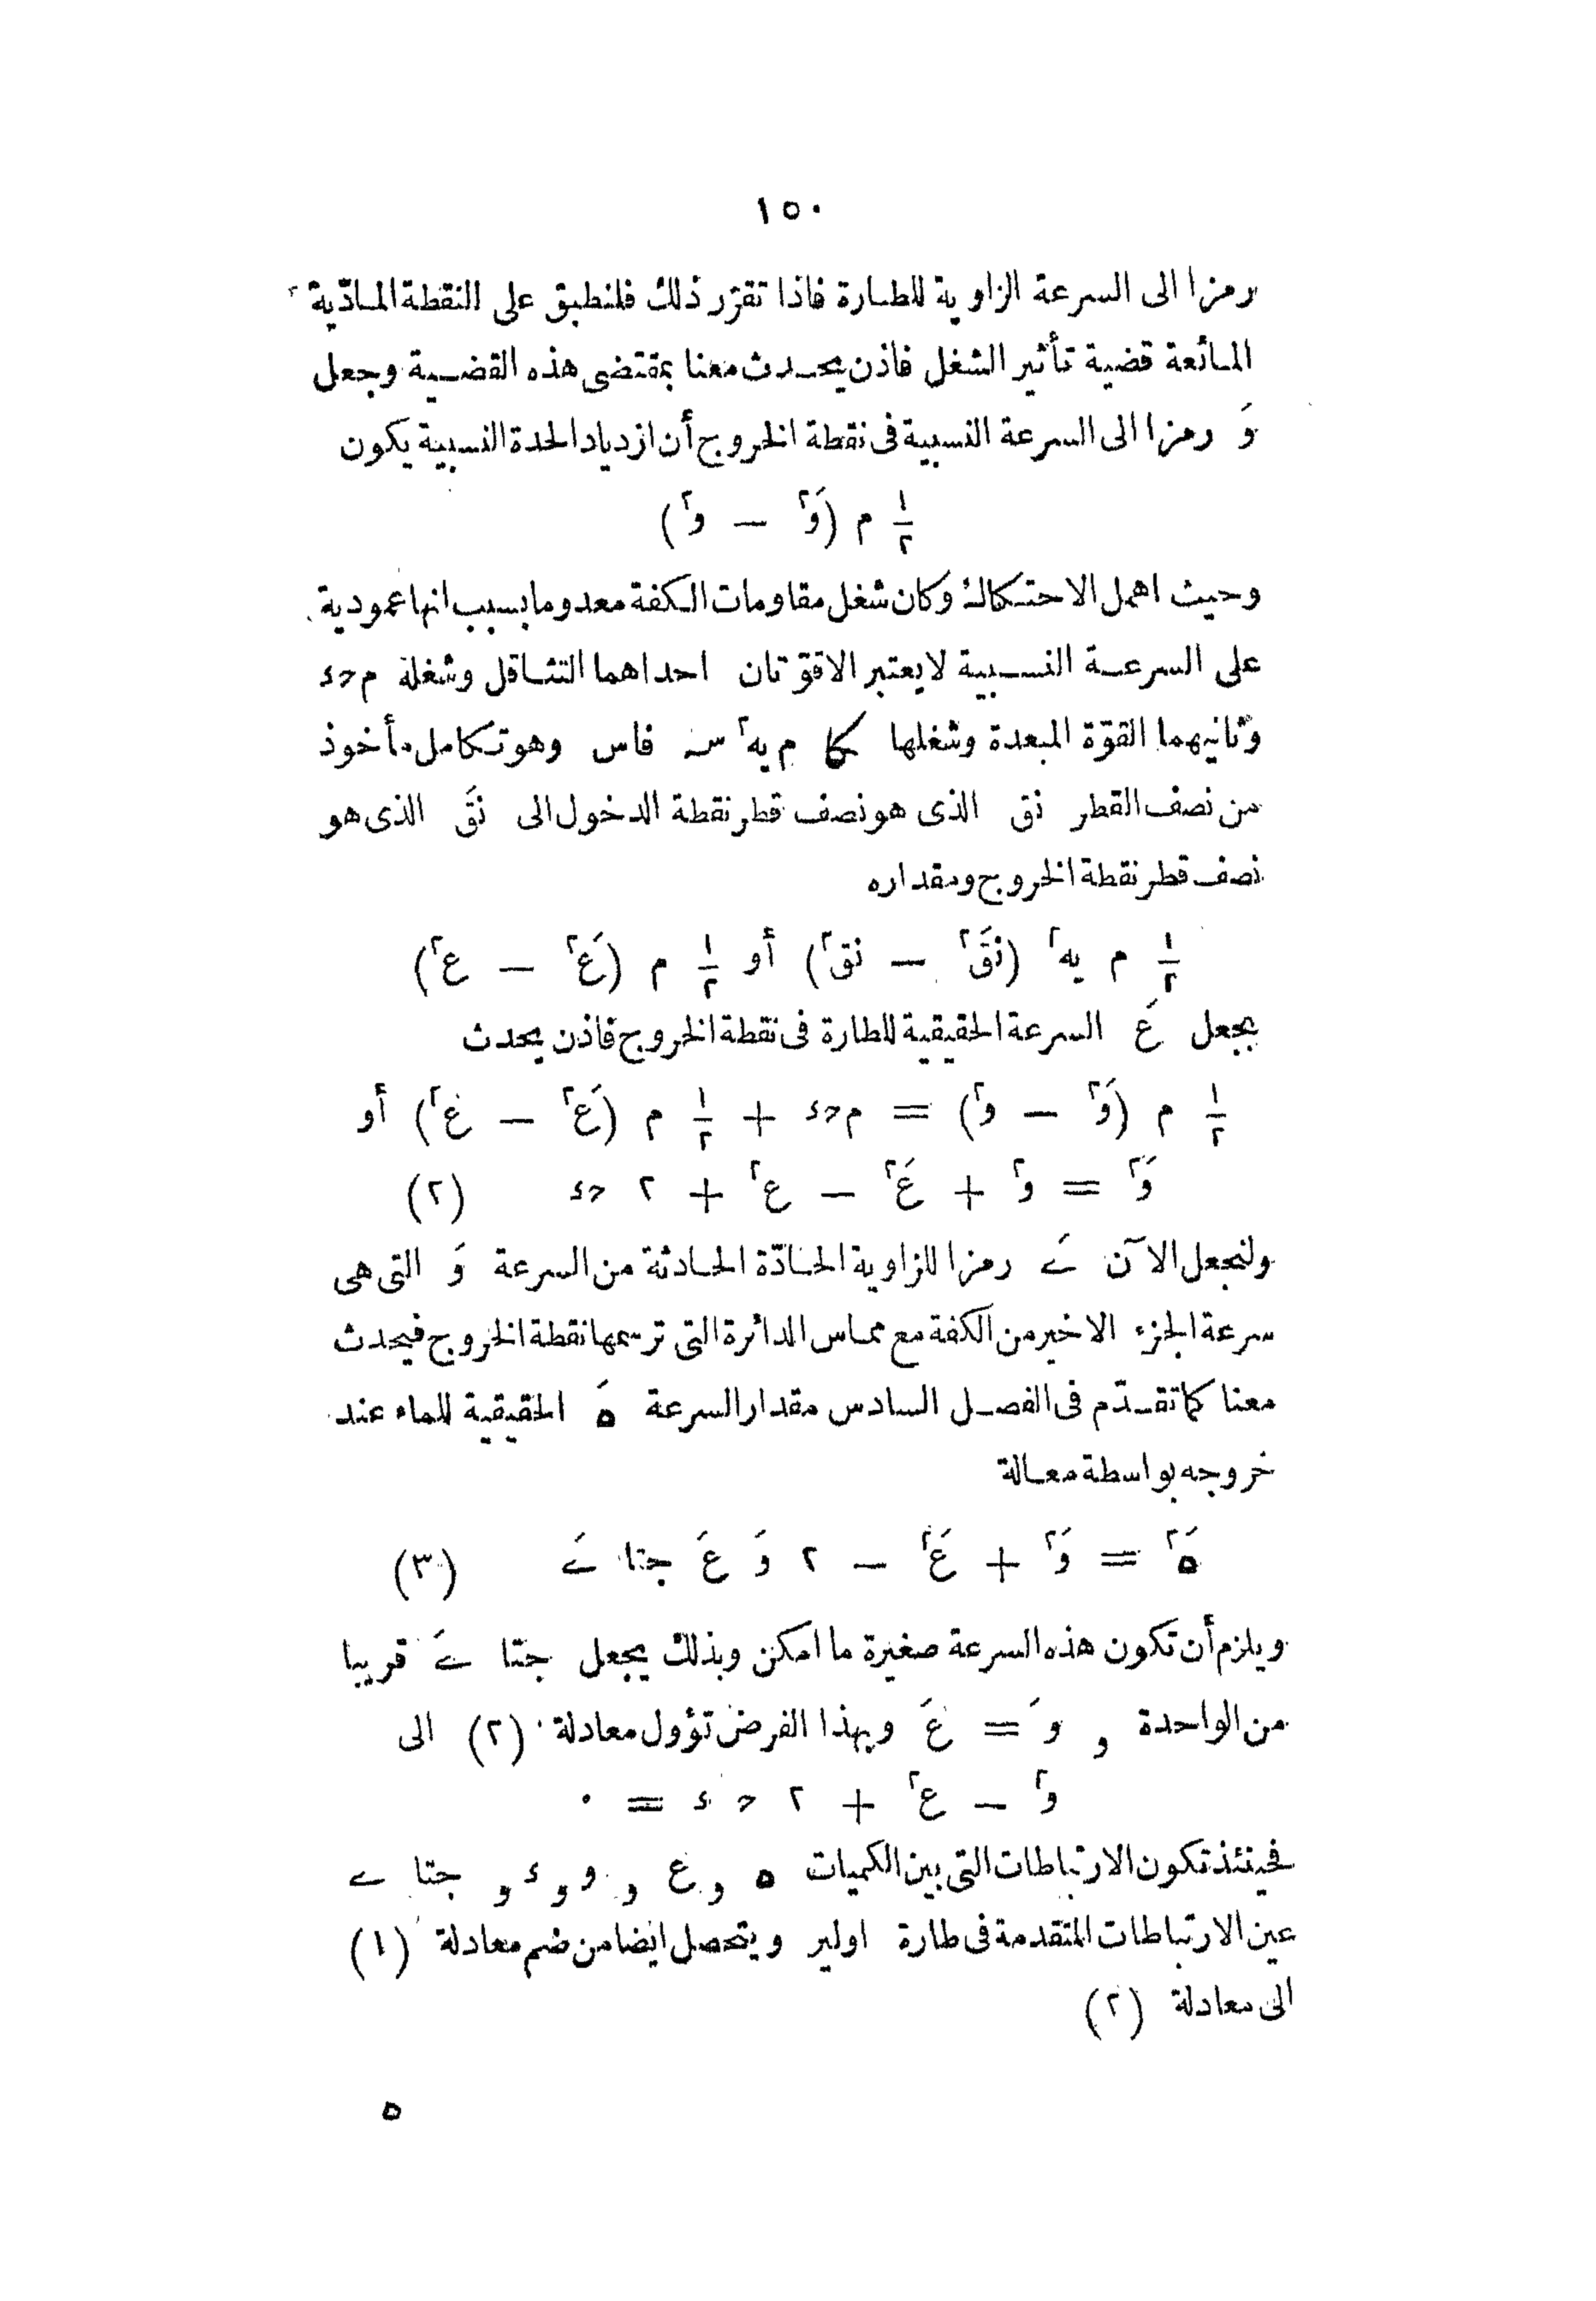 ١٥٠
رمزا الى السرعة الزاوية للطارة فاذا تقرّر ذلك فلنطبق على النقطة المادّية
المائعة قضية تأثير الشغل فاذن يحدث معنا بمقتضى هذه القضية وجعل
وَ رمزا الى السرعة النسبية فى نقطة الخروج أن ازدياد الحدة النسبية يكون
١/٢ م (وَ٢ — و٢)
وحيث اهمل الاحتكاك وكان شغل مقاومات الكفة معدوما بسبب انها عمودية
على السرعة النسبية لا يعتبر الا قوّتان احداهما التثاقل وشغله م ح ء
وثانيهما القوّة المبعدة وشغلها كا م يه٢ سـ فاس وهو تكامل مأخوذ
من نصف القطر نق الذى هو نصف قطر نقطة الدخول الى نقَ الذى هو
نصف قطر نقطة الخروج ومقداره
١/٢ م يه٢ (نقَ٢ — نق٢) أو ١/٢ م (عَ٢ — ع٢)
بجعل عَ السرعة الحقيقية للطارة فى نقطة الخروج فاذن يحدث
١/٢ م (وَ٢ — و٢) = م ح ء + ١/٢ م (عَ٢ — ع٢) أو
وَ٢ = و٢ + عَ٢ — ع٢ + ٢ ح ء (٢)
ولنجعل الآن ىَ رمزا للزاوية الحادّة الحادثة من السرعة وَ التى هى
سرعة الجزء الاخير من الكفة مع مماس الدائرة التى ترسمها نقطة الخروج فيحدث
معنا كما تقدّم فى الفصل السادس مقدار السرعة هَ الحقيقية للماء عند
خروجه بواسطة معالة
هَ٢ = وَ٢ + عَ٢ — ٢ وَ عَ جتا ىَ (٣)
ويلزم أن تكون هذه السرعة صغيرة ما امكن وبذلك يجعل جتا ىَ قريبا
من الواحدة و وَ = عَ وبهذا الفرض تؤول معادلة (٢) الى
و٢ — ع٢ + ٢ ح ء = ٠
فحينئذ تكون الارتباطات التى بين الكميات ه و ع و و و ء و جتا ى
عين الارتباطات المتقدمة فى طارة اولير ويتحصل ايضا من ضم معادلة (١)
الى معادلة (٢)
ه